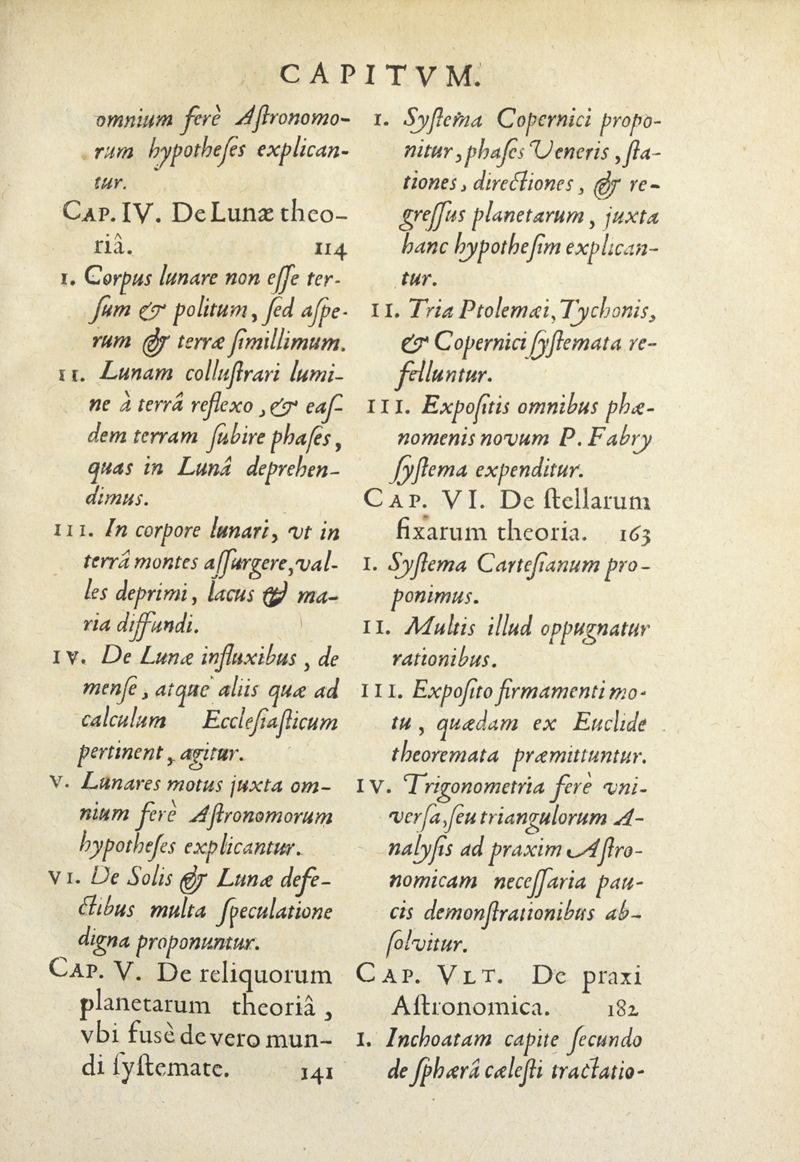 CAPITVM.
omnium ferè Aſtronomo-
rum hypotheſes explican-
tur.
CAP. IV. De Lunæ theo-
riâ. 114
I. Corpus lunare non eſſe ter-
ſum & politum, ſed aſpe-
rum & terræ ſimillimum.
II. Lunam colluſtrari lumi-
ne à terrâ reflexo, & eaſ-
dem terram ſubire phaſes,
quas in Lunâ deprehen-
dimus.
III. In corpore lunari, vt in
terrâ montes aſſurgere, val-
les deprimi, lacus & ma-
ria diffundi.
IV. De Lunæ influxibus, de
menſe, atque aliis quæ ad
calculum Eccleſiaſticum
pertinent, agitur.
V. Lunares motus juxta om-
nium ferè Aſtronomorum
hypotheſes explicantur.
VI. De Solis & Lunæ defe-
ctibus multa ſpeculatione
digna proponuntur.
CAP. V. De reliquorum
planetarum theoriâ,
vbi fusè de vero mun-
di ſyſtemate. 141
I. Syſtema Copernici propo-
nitur, phaſes Veneris, ſta-
tiones, directiones, & re-
greſſus planetarum, juxta
hanc hypotheſim explican-
tur.
II. Tria Ptolemæi, Tychonis,
& Copernici ſyſtemata re-
felluntur.
III. Expoſitis omnibus phæ-
nomenis novum P. Fabry
ſyſtema expenditur.
CAP. VI. De ſtellarum
fixarum theoria. 163
I. Syſtema Carteſianum pro-
ponimus.
II. Multis illud oppugnatur
rationibus.
III. Expoſito firmamenti mo-
tu, quædam ex Euclide
theoremata præmittuntur.
IV. Trigonometria ferè vni-
verſa, ſeu triangulorum A-
nalyſis ad praxim Aſtro-
nomicam neceſſaria pau-
cis demonſtrationibus ab-
ſolvitur.
CAP. VLT. De praxi
Aſtronomica. 182
I. Inchoatam capite ſecundo
de ſphærâ cæleſti tractatio-